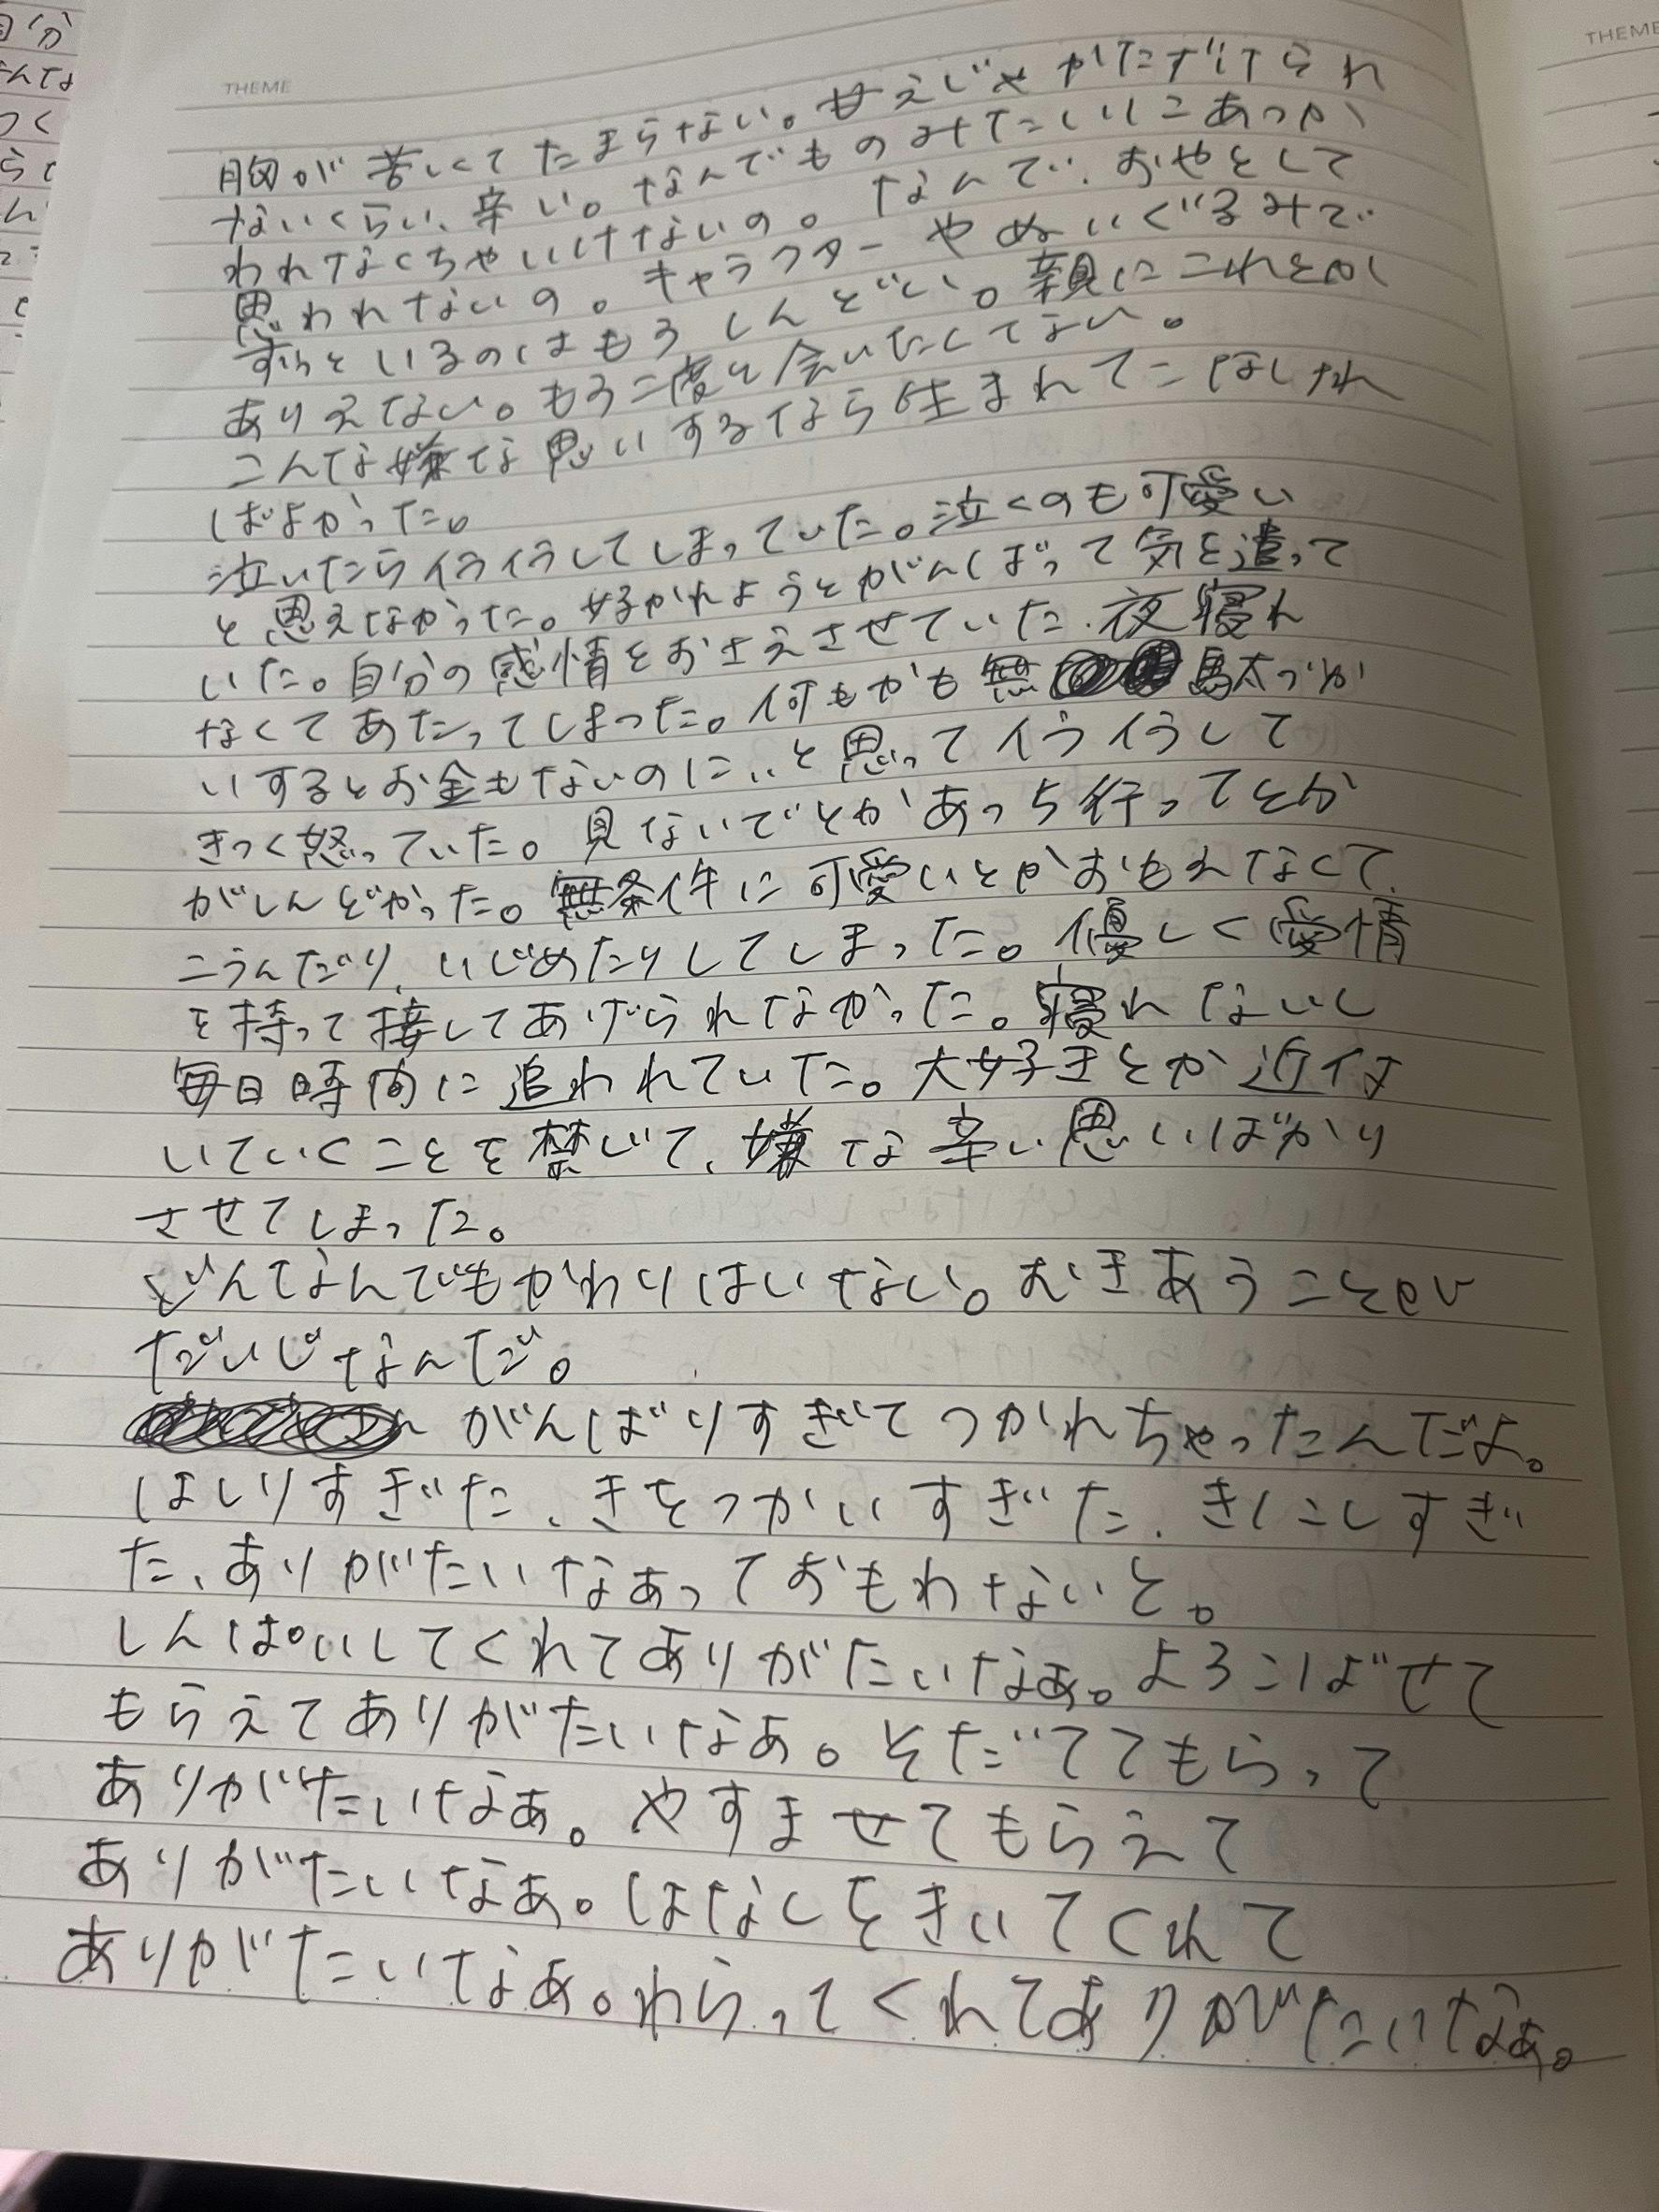 THEME
THEME
胸が苦しくてたまらない。甘えじゃかたずけられ
ないくらい、辛い。なんでものみたいにあつか
われなくちゃいけないの。なんで、おやとして
思われないの。キャラクターやぬいぐるみで
ずっといるのはもうしんどい。親にこれとか
ありえない。もう二度と会いたくてない。
こんな嫌な思いするなら生まれてこなけれ
ばよかった。
泣いたらイライラしてしまっていた。泣くのも可愛い
と思えなかった。好かれようとがんばって気を遣って
いた。自分の感情をおさえさせていた。夜寝れ
なくてあたってしまった。何もかも無駄づか
いするとお金もないのに、、と思ってイライラして
きつく怒っていた。見ないでとかあっち行ってとか
がしんどかった。無条件に可愛いとかおもえなくて、
こうんだり、いじめたりしてしまった。優しく愛情
を持って接してあげられなかった。寝れないし
毎日時間に追われていた。大好きとか近付
いていくことを禁じて、嫌な辛い思いばかり
させてしまった。
どんなんでもかわりはいない。むきあうことが
だいじなんだ。
がんばりすぎてつかれちゃったんだよ。
はしりすぎた、きをつかいすぎた、きにしすぎ
た、ありがたいなぁっておもわないと。
しんぱいしてくれてありがたいなぁ。よろこばせて
もらえてありがたいなぁ。そだててもらって
ありがたいなぁ。やすませてもらえて
ありがたいなぁ。はなしをきいてくれて
ありがたいなぁ。わらってくれてありがたいなぁ。